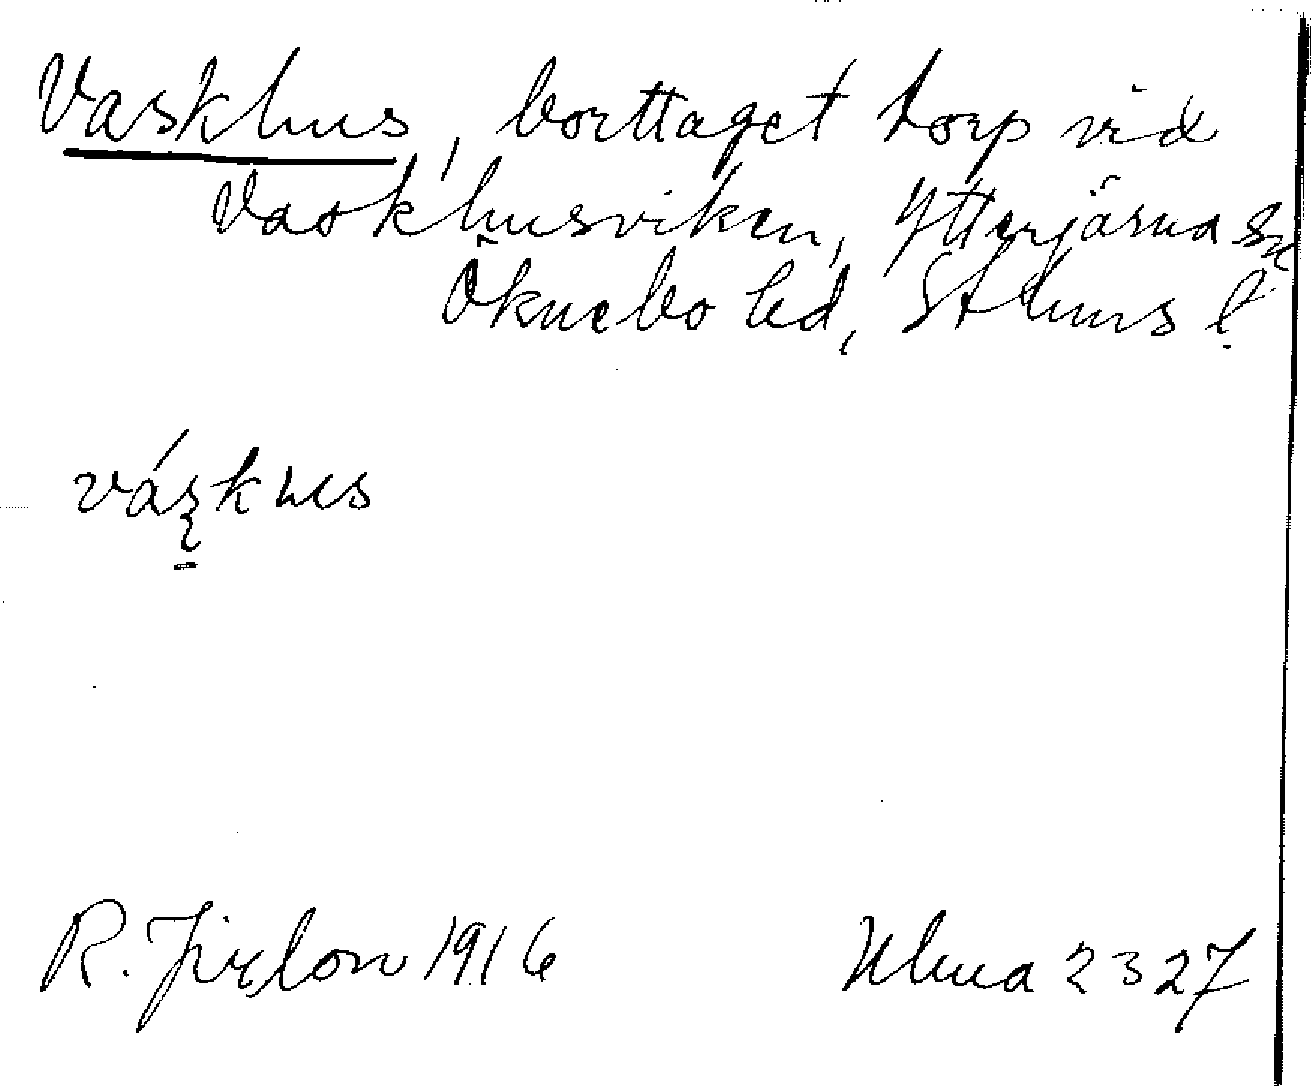 Vaskhus, borttaget torp vid
Vaskhusviken, Ytterjärna sn
Öknebo hd, Sthms l.
váskus
R. Jirlow 1916 Ulma 2327